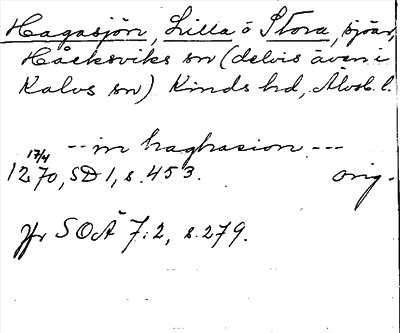 Hagasjön, Lilla o Stora, sjöar,
Håcksviks sn (delvis även i
Kalvs sn) Kinds hd, Älvsb. l.
-- in haghasion ---
17/4
1270, SD 1, s. 453. orig.
Jfr SOÄ 7:2, s. 279.